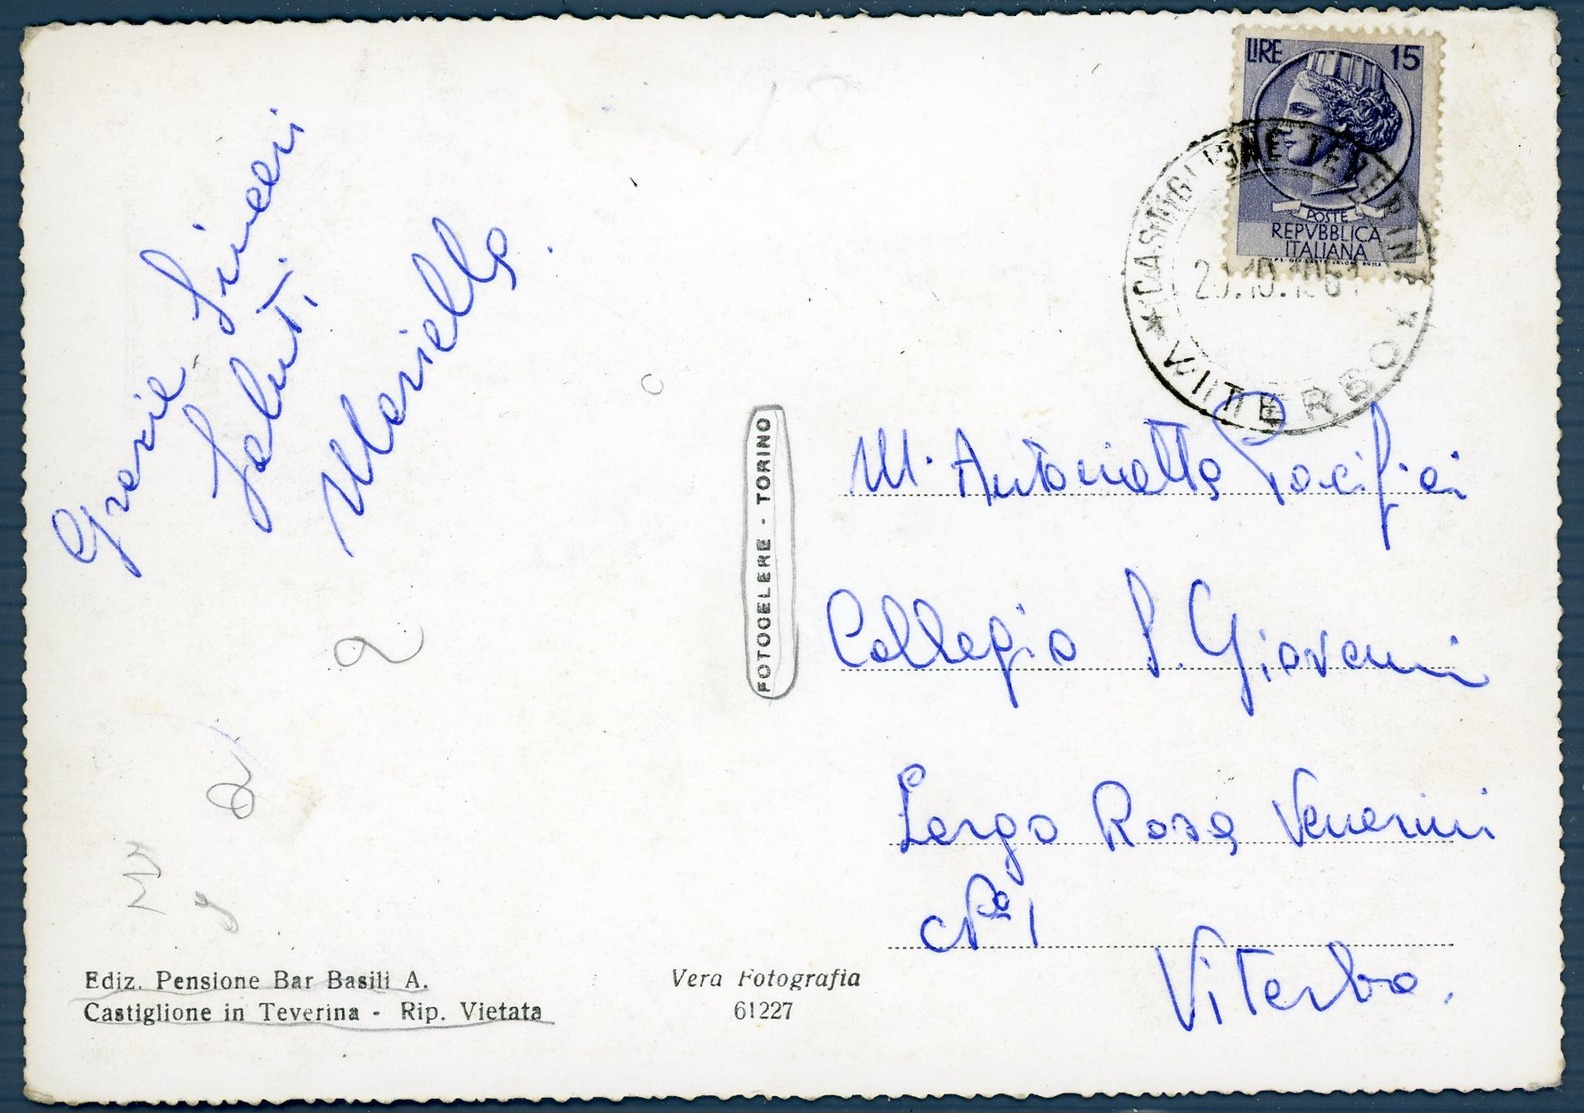 Grazie Sinceri
Saluti
Mariella.
LIRE 15
POSTE
REPVBBLICA
ITALIANA
*CASTIGLIONE TEVERINA*
VITERBO
FOTOCELERE - TORINO
M. Antonietta Pacifici
Collegio S. Giovanni
Largo Rosa Venerini
N° 1
Viterbo.
Ediz. Pensione Bar Basili A.
Castiglione in Teverina - Rip. Vietata
Vera Fotografia
61227